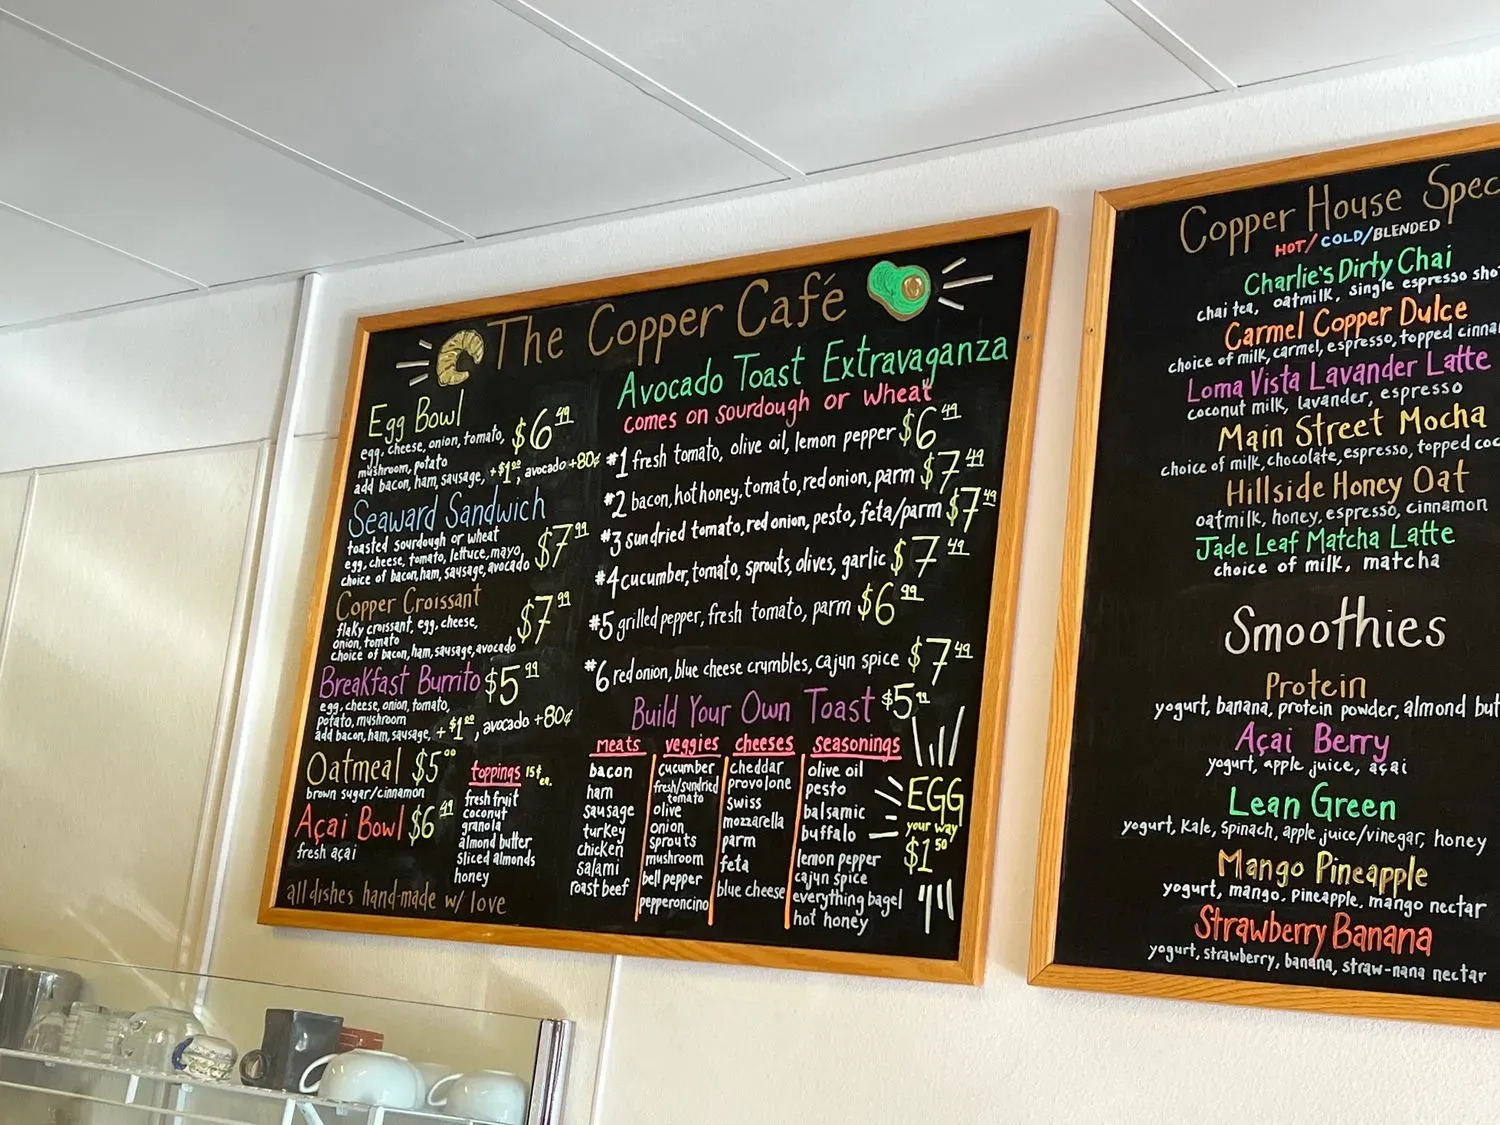 The Copper Café
Egg Bowl
egg, cheese, onion, tomato, $6.49
mushroom, potato
add bacon, ham, sausage, +$1.00, avocado +80¢
Seaward Sandwich
toasted sourdough or wheat
egg, cheese, tomato, lettuce, mayo $7.99
choice of bacon, ham, sausage, avocado
Copper Croissant
flaky croissant, egg, cheese, $7.99
onion, tomato
choice of bacon, ham, sausage, avocado
Breakfast Burrito $5.99
egg, cheese, onion, tomato,
potato, mushroom
add bacon, ham, sausage, +$1.00, avocado +80¢
Oatmeal $5.00
brown sugar/cinnamon
Açai Bowl $6.49
fresh açai
toppings
ea.
fresh fruit
coconut
granola
almond butter
sliced almonds
honey
all dishes hand-made w/ love
Avocado Toast Extravaganza
comes on sourdough or wheat
#1 fresh tomato, olive oil, lemon pepper $6.49
#2 bacon, hot honey, tomato, red onion, parm $7.49
#3 sundried tomato, red onion, pesto, feta/parm $7.49
#4 cucumber, tomato, sprouts, olives, garlic $7.49
#5 grilled pepper, fresh tomato, parm $6.99
#6 red onion, blue cheese crumbles, cajun spice $7.49
Build Your Own Toast $5.99
meats
bacon
ham
sausage
turkey
chicken
salami
roast beef
veggies
cucumber
fresh/sundried
tomato
olive
onion
sprouts
mushroom
bell pepper
pepperoncino
cheeses
cheddar
provolone
swiss
mozzarella
parm
feta
blue cheese
seasonings
olive oil
pesto
balsamic
buffalo
lemon pepper
cajun spice
everything bagel
hot honey
EGG
your way
$1.50
Copper House Spec
HOT/COLD/BLENDED
Charlie's Dirty Chai
chai tea, oatmilk, single espresso sho
Carmel Copper Dulce
choice of milk, carmel, espresso, topped cinna
Loma Vista Lavander Latte
coconut milk, lavander, espresso
Main Street Mocha
choice of milk, chocolate, espresso, topped coc
Hillside Honey Oat
oatmilk, honey, espresso, cinnamon
Jade Leaf Matcha Latte
choice of milk, matcha
Smoothies
Protein
yogurt, banana, protein powder, almond but
Açai Berry
yogurt, apple juice, açai
Lean Green
yogurt, kale, spinach, apple juice/vinegar, honey
Mango Pineapple
yogurt, mango, pineapple, mango nectar
Strawberry Banana
yogurt, strawberry, banana, straw-nana nectar